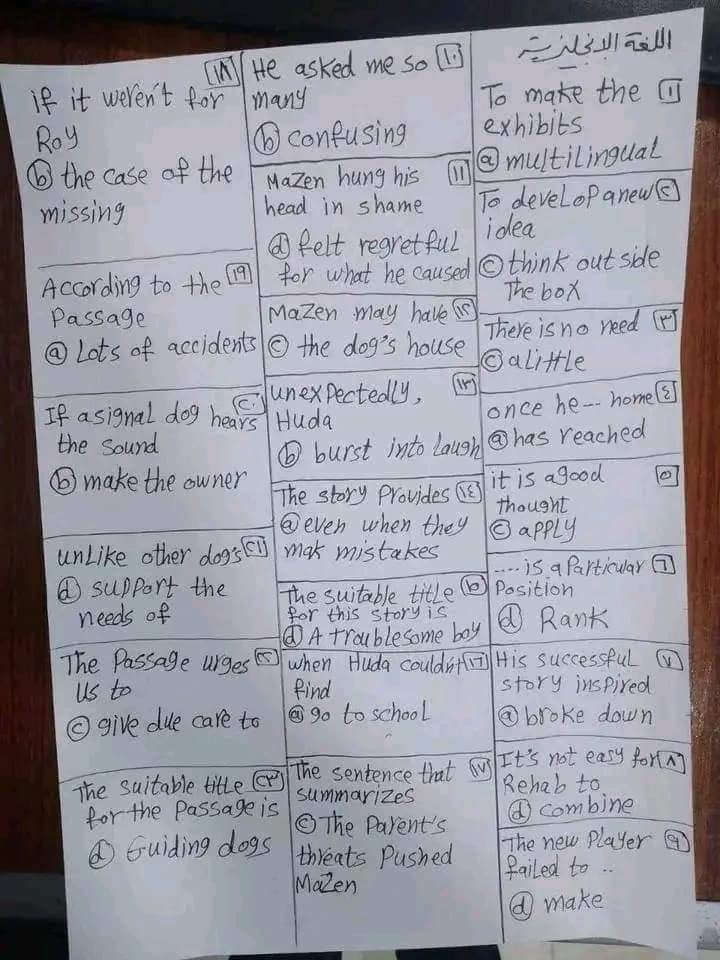 اللغة الانجليزية
To make the ١
exhibits
ⓐ multilingual
To develop a new ٢
idea
ⓒ think out side
the box
There is no need ٣
ⓒ a little
once he --- home ٤
ⓐ has reached
it is a good ٥
thought
ⓒ apply
.... is a Particular ٦
Position
ⓓ Rank
His successful ٧
story inspired
ⓐ broke down
It's not easy for ٨
Rehab to
ⓓ combine
The new Player ٩
failed to ..
ⓓ make
He asked me so ١٠
many
ⓑ confusing
Mazen hung his ١١
head in shame
ⓓ felt regretful
for what he caused
Mazen may have ١٢
ⓒ the dog's house
unexpectedly, ١٣
Huda
ⓑ burst into laugh
The story Provides ١٤
ⓐ even when they
mak mistakes
The suitable title ١٥
for this story is
ⓓ A troublesome boy
when Huda couldn't ١٦
find
ⓐ go to school
The sentence that ١٧
summarizes
ⓒ The Parent's
threats Pushed
Mazen
١٨
if it weren't for
Roy
ⓑ the case of the
missing
According to the ١٩
Passage
ⓐ Lots of accidents
If a signal dog hears ٢٠
the sound
ⓑ make the owner
unlike other dogs ٢١
ⓓ support the
needs of
The Passage urges ٢٢
us to
ⓒ give due care to
The suitable title ٢٣
for the Passage is
ⓓ Guiding dogs